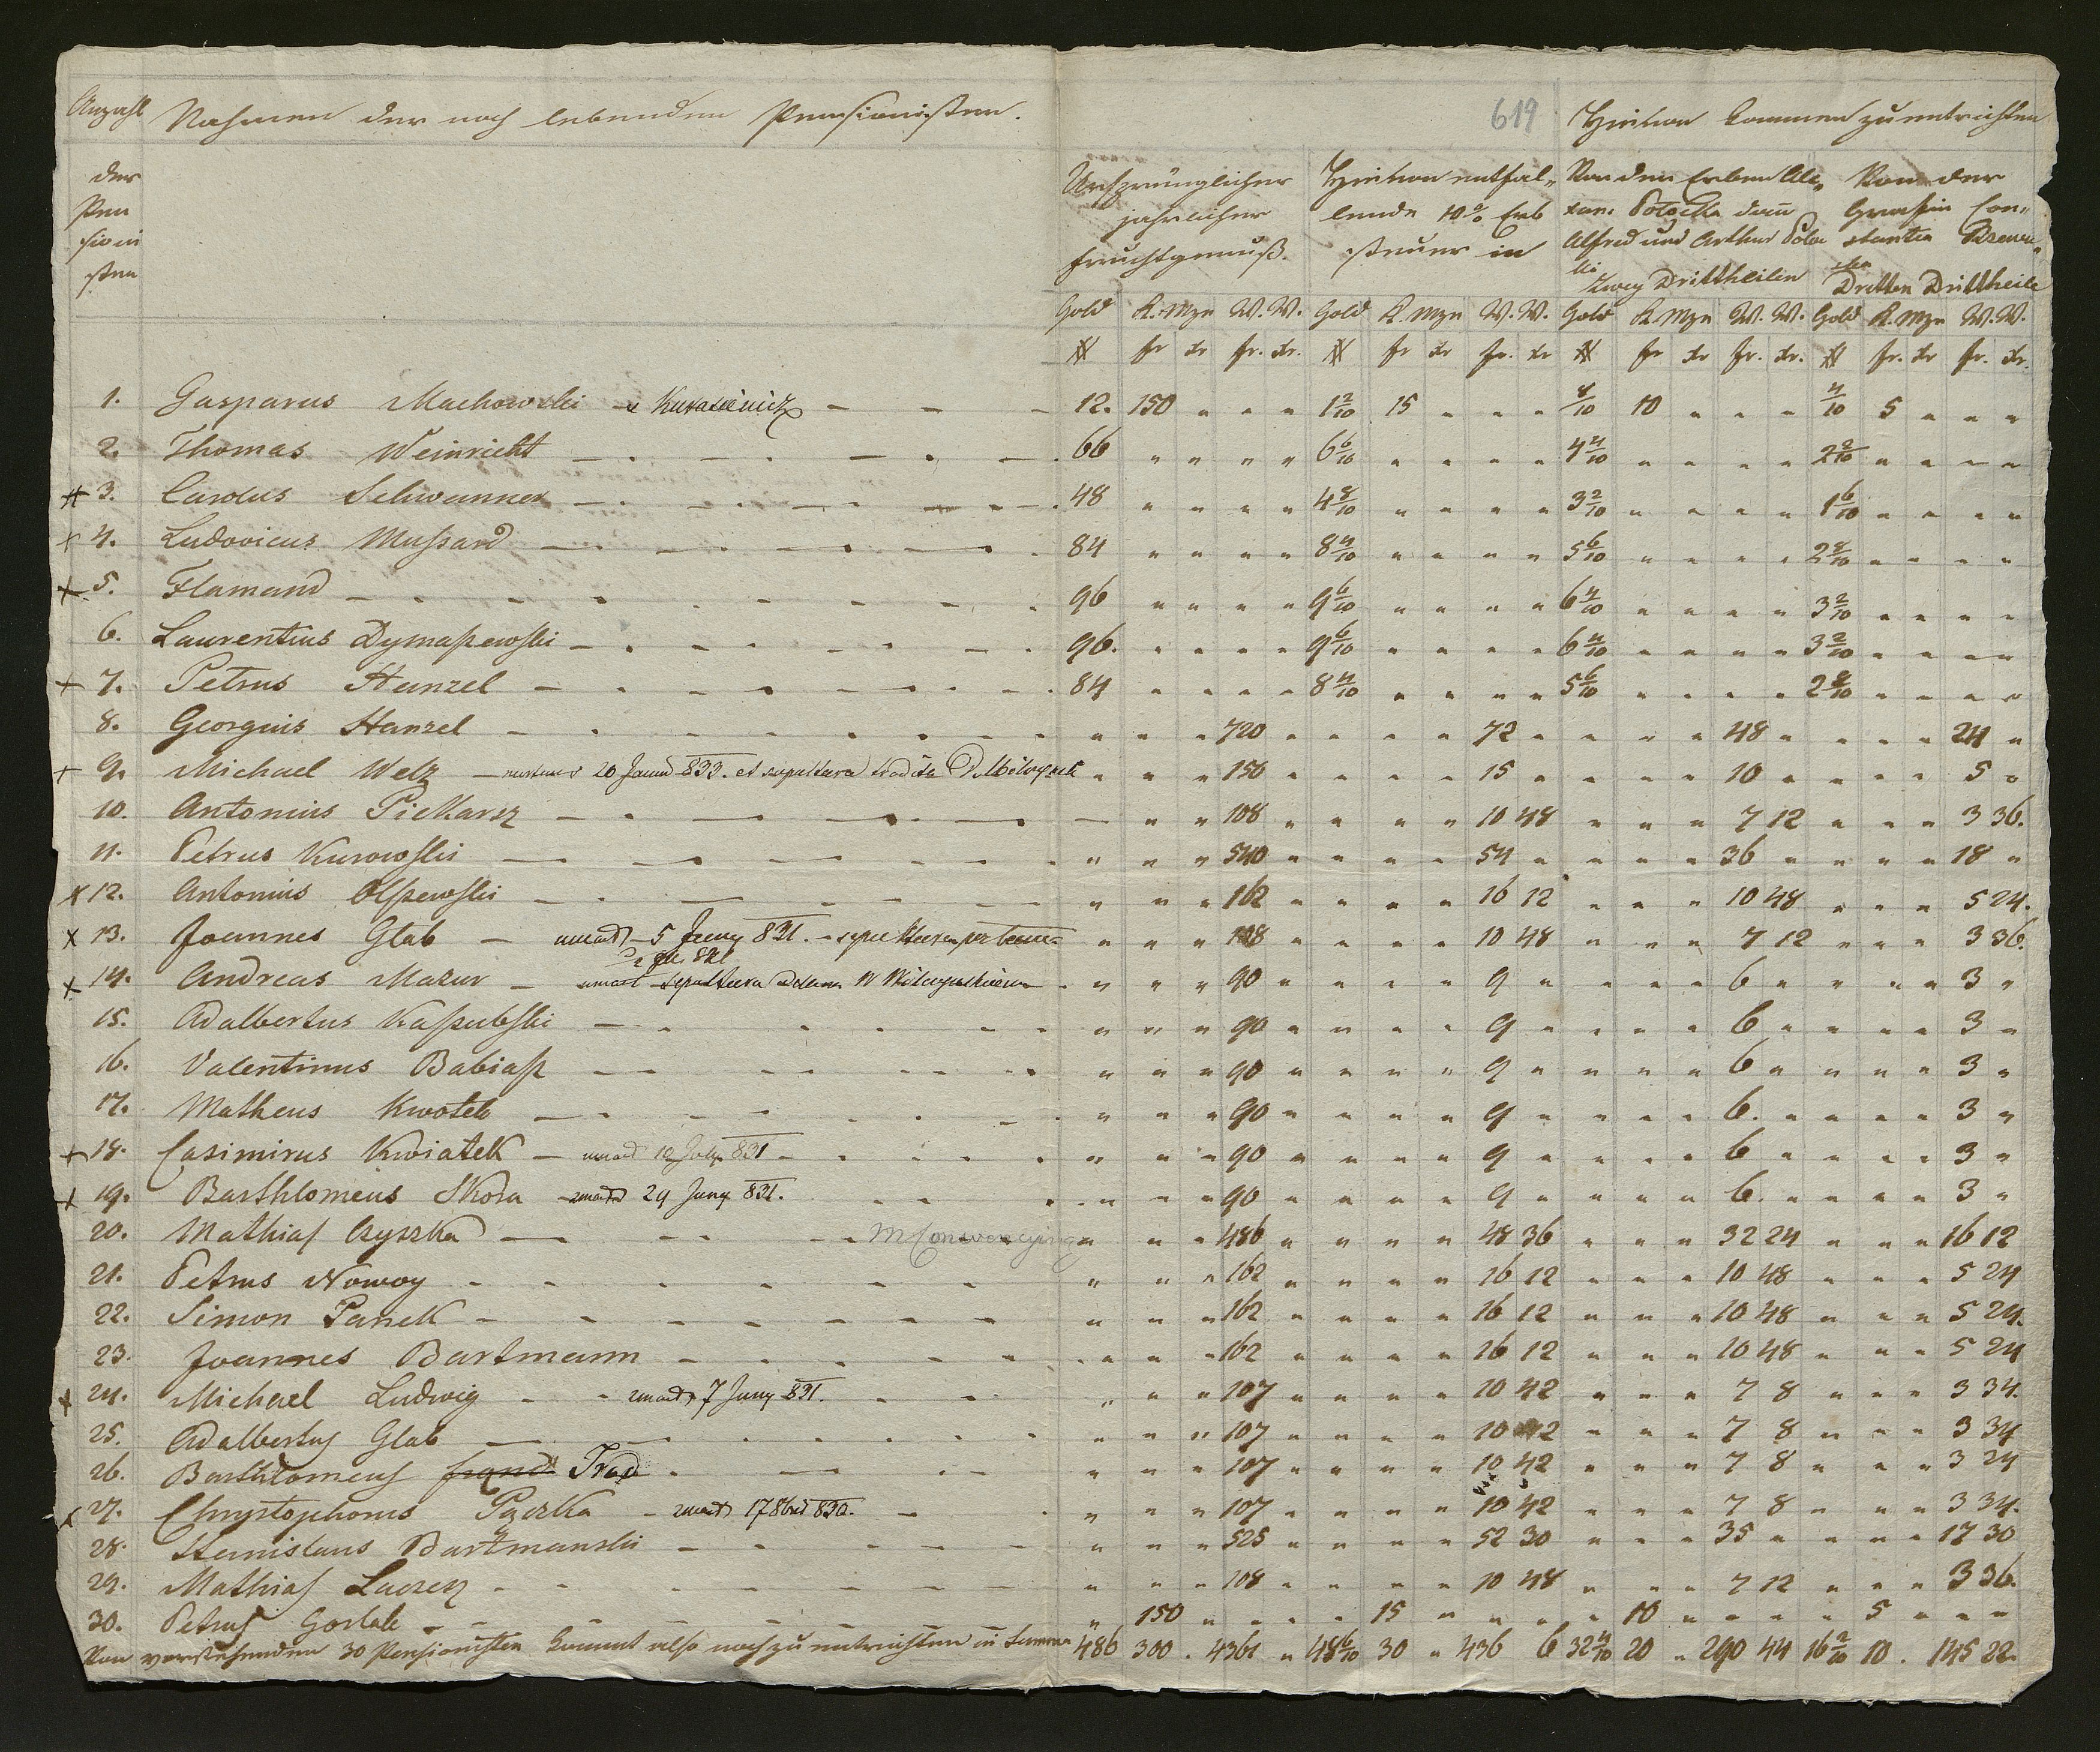 619
Anzahl Nahmen der noch lebenden Pensionisten. Hievon kommen zu entrichten
der Pen sioni sten
Ursprünglicher jährlicher Fruchtgenuß.
Hievon entfallende 10% Erb steuer in
Von den Erben Alfred und Arthur Zwey Drittheilen
Von der Gräfin Con„ stantia Dritten Drittheile
Gold K. Mze W. W. Gold K. Mze W. W. Gold K. Mze W. W. Gold K. Mze W. W.
# fr xr fr. xr. # fr xr fr. xr # fr xr fr. xr. # fr. xr fr. xr.
1. Gasparus Machowski 12. 150 „ „ „ 1 2/10 15 „ „ „ 8/10 10 „ „ „ 4/10 5 „ „ „
2. Thomas Weinricht 66 „ „ „ „ 6 6/10 „ „ „ „ 4 4/10 „ „ „ „ 2 2/10 „ „ „ „
# 3. Carolus Schwanner 48 „ „ „ „ 4 8/10 „ „ „ „ 3 2/10 „ „ „ „ 1 6/10 „ „ „ „
+ 4. Ludovicus Mussard 84 „ „ „ „ 8 4/10 „ „ „ „ 5 6/10 „ „ „ „ 2 8/10 „ „ „ „
+ 5. Flamand 96 „ „ „ „ 9 6/10 „ „ „ „ 6 4/10 „ „ „ „ 3 2/10 „ „ „ „
6. Laurentius Dymaszewski 96. „ „ „ „ 9 6/10 „ „ „ „ 6 4/10 „ „ „ „ 3 2/10 „ „ „ „
+ 7. Petrus Hanzel 84 „ „ „ „ 8 4/10 „ „ „ „ 5 6/10 „ „ „ „ 2 8/10 „ „ „ „
8. Georgius Hanzel „ „ „ 720 „ „ „ „ 72 „ „ „ „ 48 „ „ „ „ 24 „
+ 9. Michael Welz 20 833. et sepultura „ „ „ 150 „ „ „ „ 15 „ „ „ „ 10 „ „ „ „ 5 „
10. Antonius Piekarz „ „ 108 „ „ „ „ 10 48 „ „ „ 7 12 „ „ „ 3 36.
11. Petrus Kurowski „ „ „ 540 „ „ „ „ 54 „ „ „ „ 36 „ „ „ „ 18 „
x 12. Antonius Olszewski „ „ „ 162 „ „ „ „ 16 12 „ „ „ 10 48 „ „ „ 5 24.
x 13. Joannes Glab – umarł 5 Juny 831. „ „ „ 108 „ „ „ „ 10 48 „ „ „ 7 12 „ „ „ 3 36.
x 14. Andreas Mazur – umarł sepultura „ „ „ 90 „ „ „ „ 9 „ „ „ „ 6 „ „ „ „ 3 „
15. Adalbertus Kaszubski „ „ „ 90 „ „ „ „ 9 „ „ „ „ 6 „ „ „ „ 3 „
16. Valentinus Babiasz „ „ „ 90 „ „ „ „ 9 „ „ „ „ 6 „ „ „ „ 3 „
17. Matheus Kwotek „ „ „ 90 „ „ „ „ 9 „ „ „ „ 6. „ „ „ „ 3 „
+ 18. Casimirus Kwiatek – umarł 10 July 831 „ „ „ 90 „ „ „ „ 9 „ „ „ „ 6 „ „ „ „ 3 „
x 19. Barthlomeus Skora umarł 29 Juny 831. „ „ „ 90 „ „ „ „ 9 „ „ „ „ 6. „ „ „ „ 3 „
20. Mathias Czyszka „ „ „ 486 „ „ „ „ 48 36 „ „ „ 32 24 „ „ „ 16 12
21. Petrus Nowoy „ „ „ 162 „ „ „ „ 16 12 „ „ „ 10 48 „ „ „ 5 24
22. Simon Panek „ „ „ 162 „ „ „ „ 16 12 „ „ „ 10 48 „ „ „ 5 24.
23. Joannes Bartmann „ „ „ 162 „ „ „ „ 16 12 „ „ „ 10 48 „ „ „ 5 24
x 24. Michael Ludwig umarł 7 Juny 831. „ „ „ 107 „ „ „ „ 10 42 „ „ „ 7 8 „ „ „ 3 34.
25. Adalbertus Glab „ „ „ 107 „ „ „ „ 10 42 „ „ „ 7 8 „ „ „ 3 34
26. Barthlomeus „ „ „ 107 „ „ „ „ 10 42 „ „ „ 7 8 „ „ „ 3 24
x 27. Chrystophorus Pączka umarł 17 8bris 830. „ „ „ 107 „ „ „ „ 10 42 „ „ „ 7 8 „ „ „ 3 34.
28. Stanislaus Bartmanski „ „ „ 525 „ „ „ „ 52 30 „ „ „ 35 „ „ „ „ 17 30
29. Mathias „ „ „ 108 „ „ „ „ 10 48 „ „ „ 7 12 „ „ „ 3 36.
30. Petrus „ 150 „ „ „ „ 15 „ „ „ „ 10 „ „ „ „ 5 „ „ „
Von vorstehenden 30 Pensionisten kommt also noch zu entrichten in Summa 486 300 . 4361 „ 48 6/10 30 „ 436 6 32 4/10 20 „ 290 44 16 2/10 10 . 145 22.